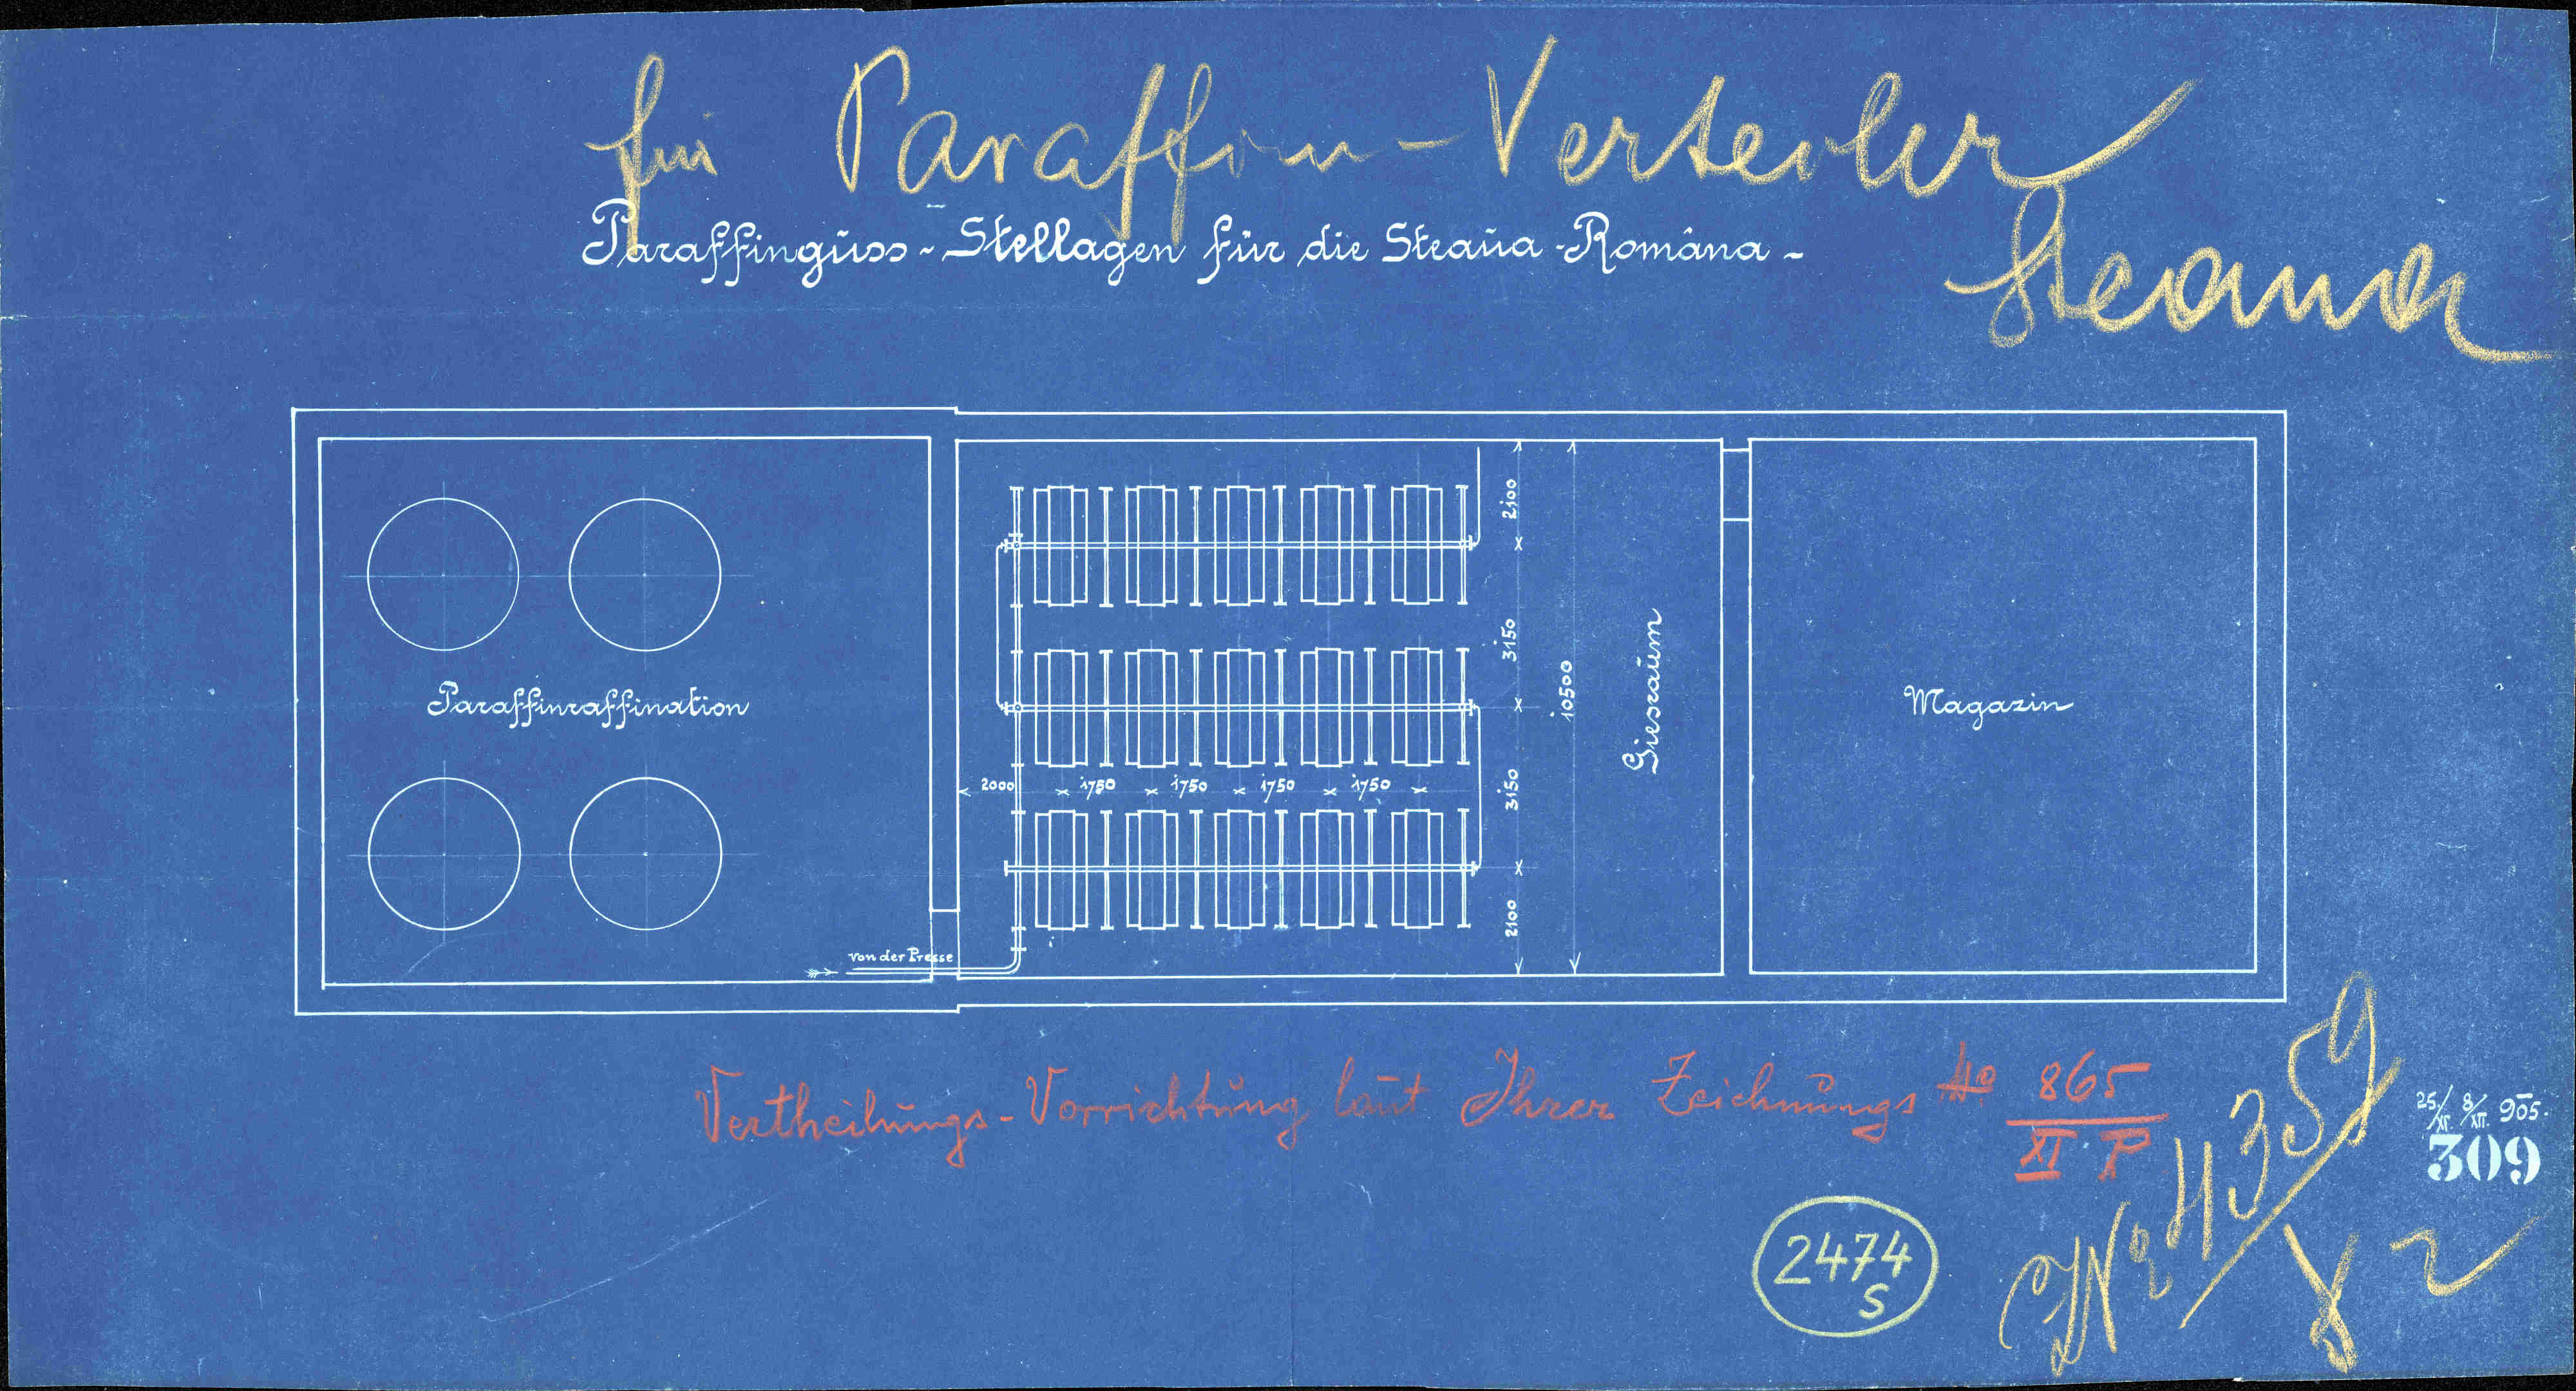 für Paraffin-Verteiler
Steaua
Paraffinguss-Stellagen für die Steaua-Româna-
Paraffinraffination
2100
3150
10500
3150
2100
Giesraum
Magazin
2000 1750 1750 1750 1750
von der Presse
Vertheilungs-Vorrichtung laut Ihrer Zeichnungs No 865
XI P
25/XI. 8/XII. 905.
309
2474
S